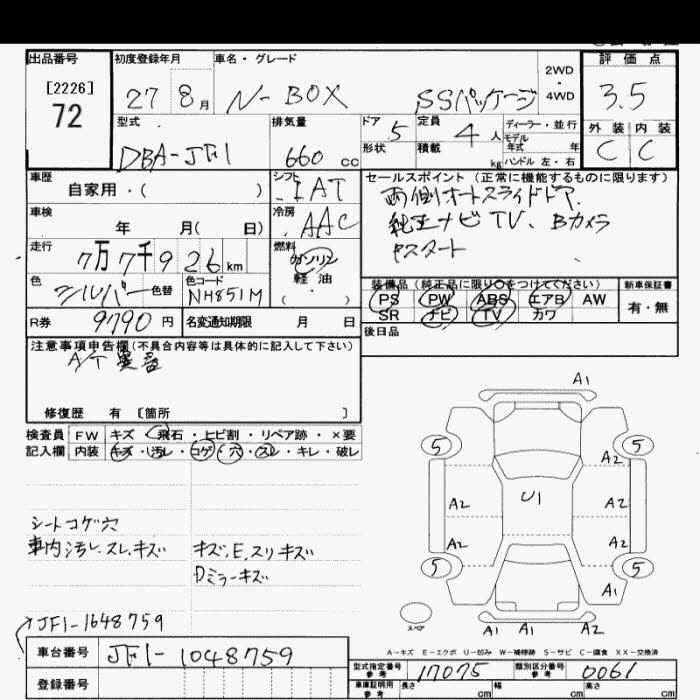 出品番号 初度登録年月 車名・グレード 2WD・4WD 評価点
[2226]
72 27 8月 N-BOX SSパッケージ 3.5
型式 排気量 ドア 定員 ディーラー・並行 外装 内装
DBA-JF1 660cc 5 4人 モデル年式 年 C C
形状 積載 kg ハンドル 左・右
車歴 シフト セールスポイント (正常に機能するものに限ります)
自家用・( ) IAT 両側オートスライドドア、
車検 冷房 純正ナビTV、Bカメラ
年 月( 日) AAC Pスタート
走行 燃料
7万7千926km ガソリン
軽油
( )
色 色替 色コード 装備品 (純正品に限り○をつけてください) 新車保証書
シルバー NH851M PS PW ABS エアB AW 有・無
SR ナビ TV カワ
R券 9790円 名変通知期限 月 日 後日品
注意事項申告欄(不具合内容等は具体的に記入して下さい)
A/T
修復歴 有 [箇所 ]
検査員 FW キズ・飛石・ヒビ割・リペア跡・×要
記入欄 内装 キズ・汚レ・コゲ・穴・スレ・キレ・破レ
A1
5 5
A2
A2 U1 A2
A2 A2
5 5
A1
A1 A1 A1
スペア
シートコゲ穴
車内汚レ、スレ、キズ キズ、E、スリキズ
Dミラーキズ
JF1-1648759
A-キズ E-エクボ U-凹み W-補修跡 S-サビ C-腐食 XX-交換済
車台番号 JF1-1048759
型式指定番号 参考 17075 類別区分番号 参考 0061
登録番号
車庫証明用 参考 長さ cm 幅 cm 高さ cm